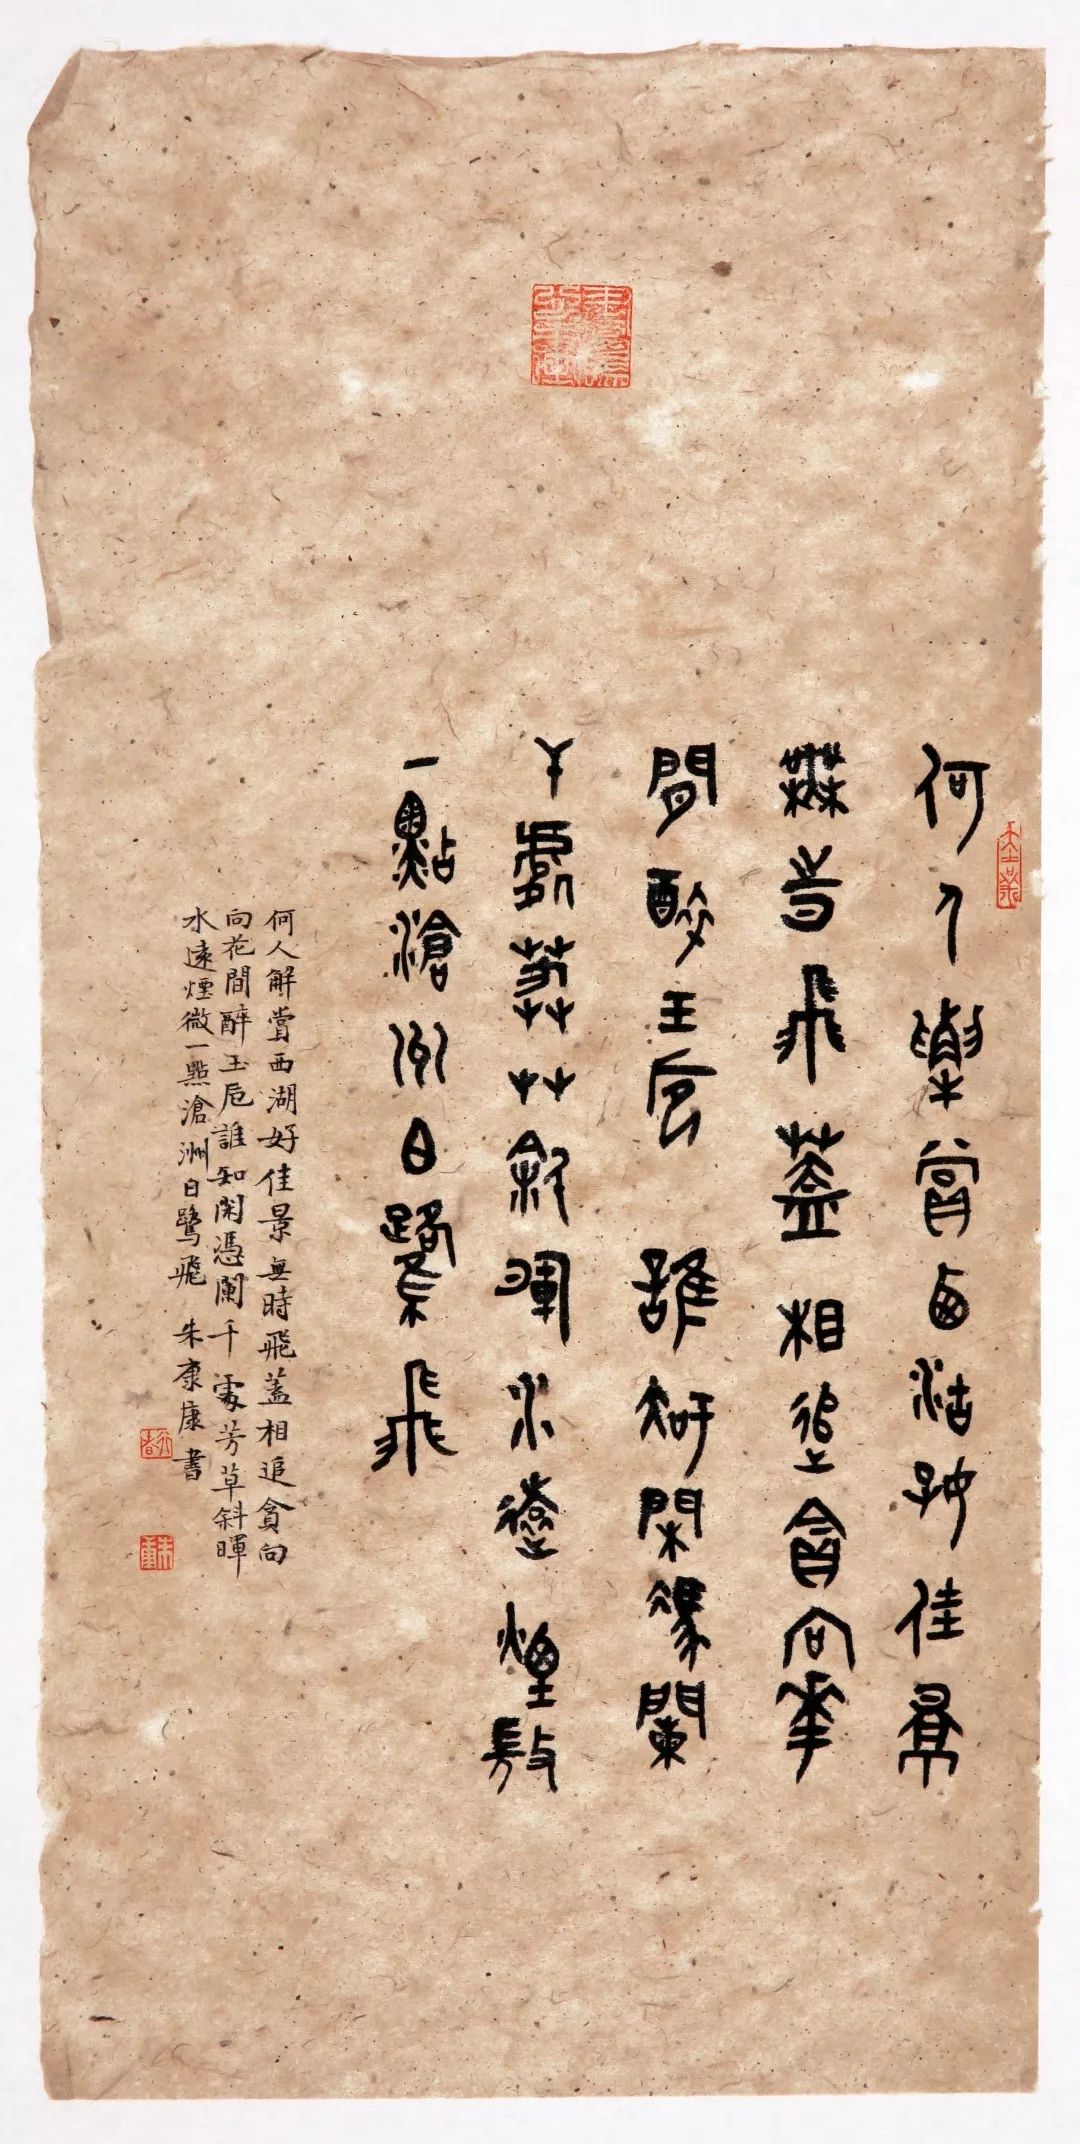 何人解賞西湖好佳景
無時飛蓋相追貪向花
間醉玉卮誰知閑憑闌
干處芳草斜暉水遠煙微
一點滄洲白鷺飛
何人解賞西湖好佳景無時飛蓋相追貪向
向花間醉玉卮誰知閑憑闌千處芳草斜暉
水遠煙微一點滄洲白鷺飛 朱康康書